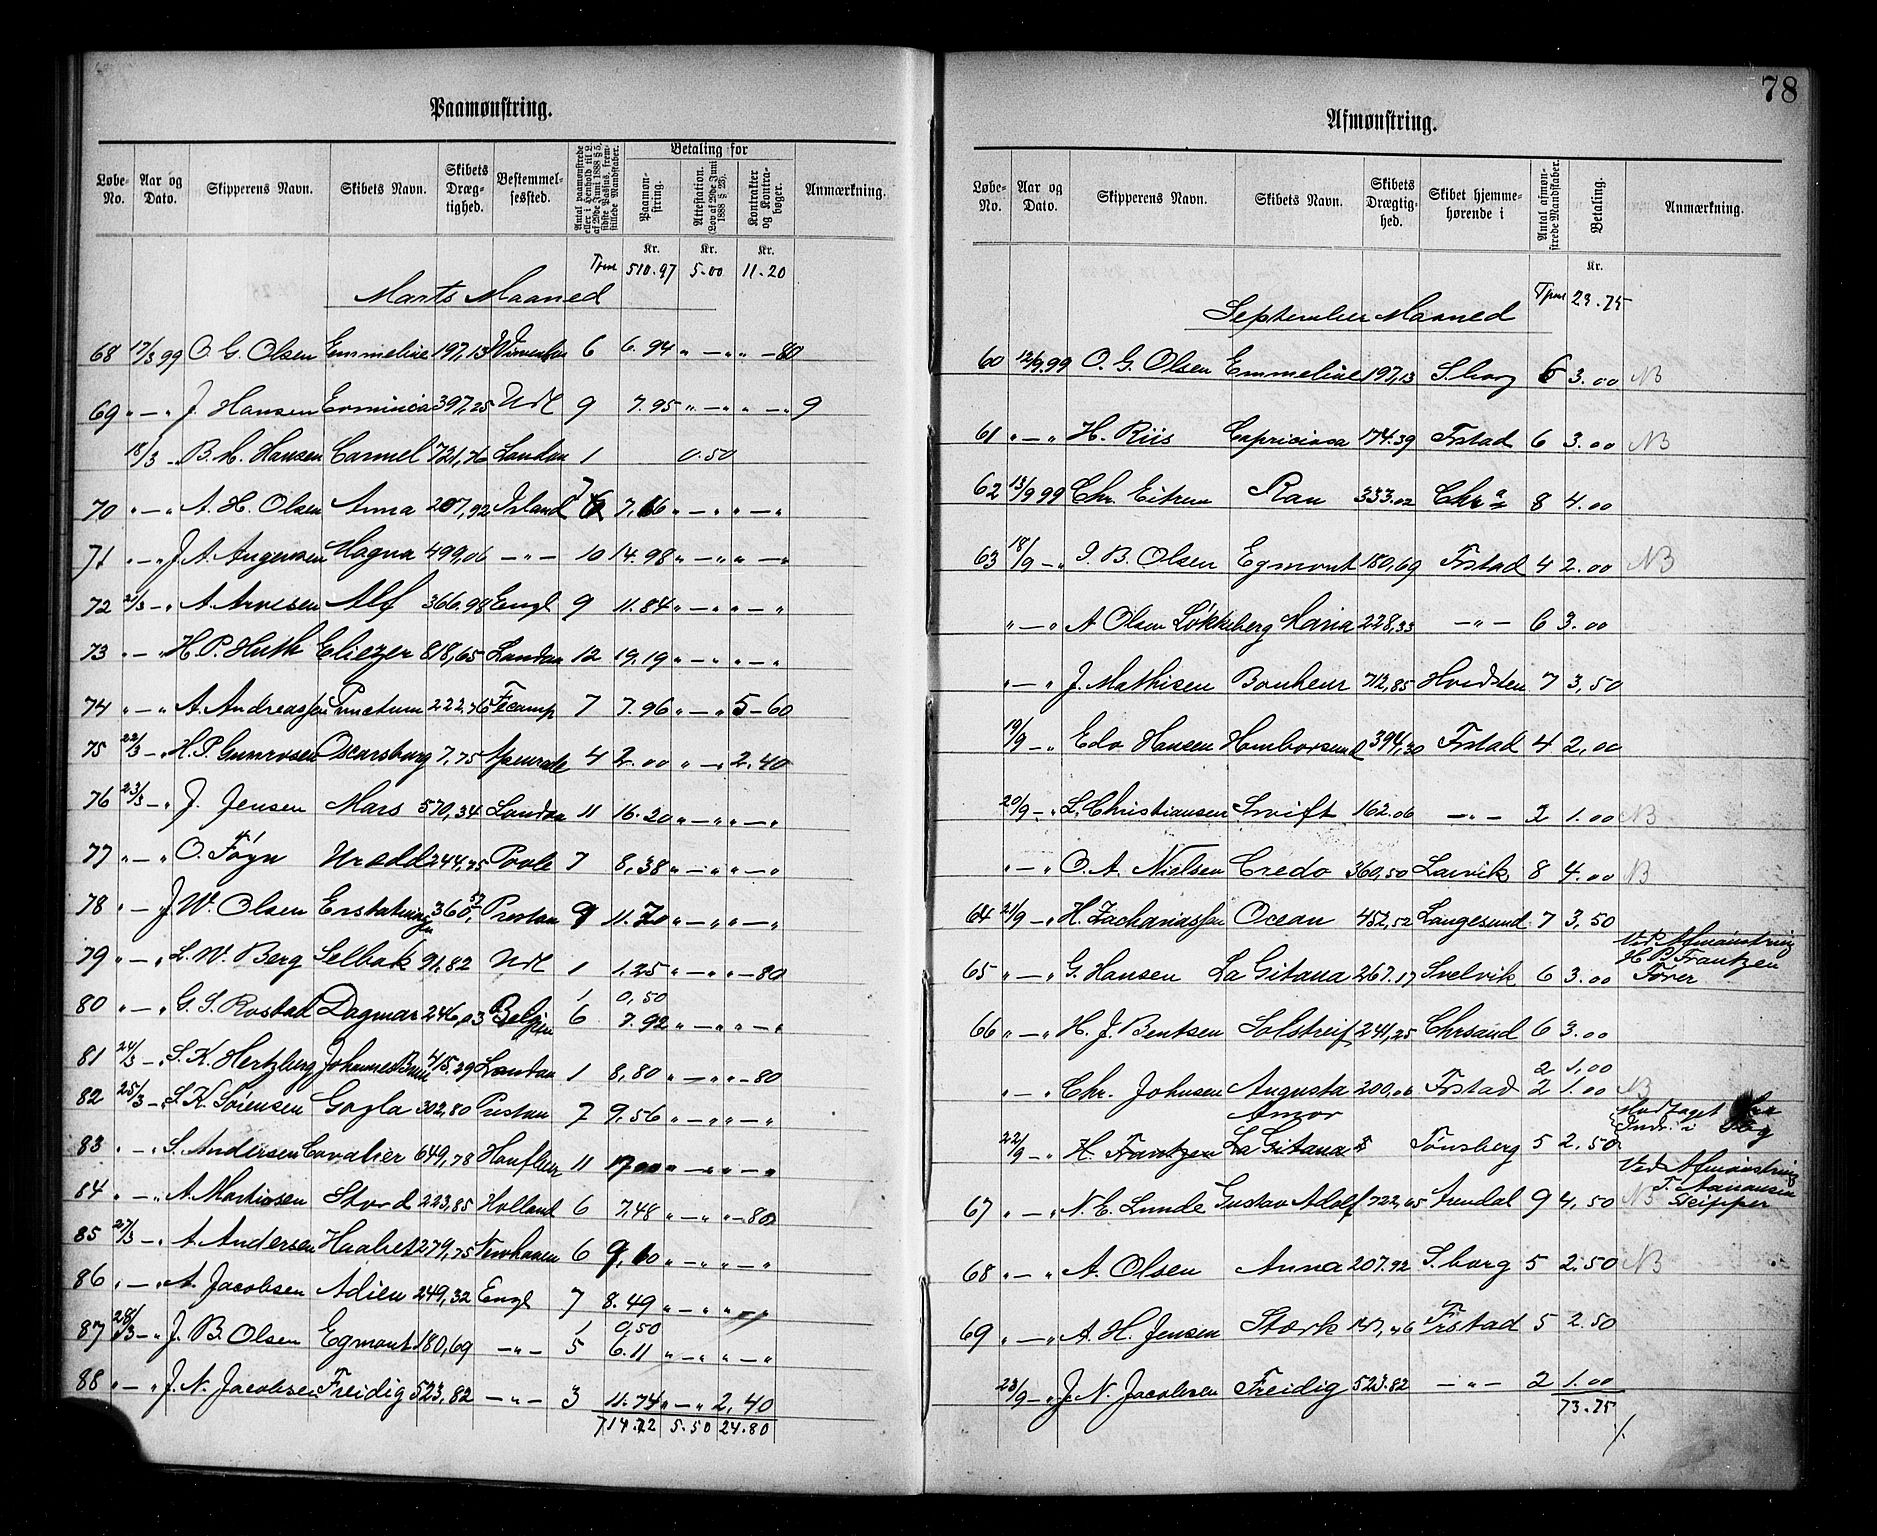 78
Paamønstring.
Løbe-No. Aar og Dato. Skipperens Navn. Skibets Navn. Skibets Dræg-tighed. Bestemmel-sessted. Antal paamønstrede eller i Henhold til L. af 29de Juni 1888 § 5, sidste Passus, frem-stillede Mandskaber. Betaling for Paamøn-string. Attestation. (Lov af 29de Juni 1888 § 23). Kontrakter og Kontra-bøger. Anmærkning.
Kr. Kr. Kr.
510.97 5.00 11.20
Marts Maaned
68 17/3 99 O. G. Olsen Emmeline 197,13 6 6.94 " — " " — 80
69 " — " J. Hansen Erminia 397,25 Udl 9 7.95 " — " " — " 9
18/3 — " B. M. Hansen Carmel 721,76 London 1 0.50
70 " — " A. H. Olsen Anna 207,92 Irland 7 7,16 " — " " — "
71 " — " J. A. Augensen Magna 499,06 — " — 10 14.98 " — " " — "
72 21/3 — " A. Arnesen Alf 366,98 Engl 9 11.84 " — " " — "
73 " — " H. P. Huth Eliezer 818,65 London 12 19,19 " — " " — "
74 " — " A. Andreassen Punctum 222,76 Fecamp 7 7.96 " — " 5 — 60
75 22/3 — " H. P. Gunrosen Oscarsborg 7,75 Apenrade 4 2.00 " — " 2.40
76 23/3 — " J. Jensen Mars 570,34 London 11 16.20 " — " " — "
77 " — " O. Føyn Urædd 244,75 Poole 7 8,38 " — " " — "
78 " — " J. W. Olsen Erstatningen 360,52 Preston 9 11.70 " — " " — "
79 " — " L. W. Berg Selbak 91,82 Udl 1 1,25 " — " " — 80
1 0,50
80 " — " G. S. Rostad Dagmar 246,03 Belgien 6 7.92 " — " " — "
81 24/3 — " S. K. Hertzberg Johannes Brun 415.29 London 1 8,80 " — " " — 80
82 25/3 — " S. K. Sørensen Gogla 302,80 Preston 7 9,56 " — " " — "
83 " — " S. Andersen Cavalier 649,78 Honfleur 11 17,00 " — " " — "
84 " — " A. Martinsen Stord 223,85 Holland 6 7,48 " — " " — 80
85 27/3 — " A. Andersen Haabet 279,75 Newhaven 6 9,10 " — " " — "
86 " — " A. Jacobsen Adieu 249,32 Engl 7 8.49 " — " " — "
1 0,50
87 28/3 — " J. B. Olsen Egmont 180,69 — " — 5 6.11 " — " " — "
88 " — " J. N. Jacobsen Freidig 523,82 — " — 3 11.74 " — " 2,40
714.72 5.50 24.80
Afmønstring.
Løbe-No. Aar og Dato. Skipperens Navn. Skibets Navn. Skibets Drægtig-hed. Skibet hjemme-hørende i Antal afmøn-strede Mandskaber. Betaling. Anmærkning.
Kr.
23.75
September Maaned
60 12/9.99 O. G. Olsen Emmeline 197,13 S.borg 6 3.00 NB
61 " — " H. Riis Capriciosa 174.39 Frstad 6 3.00 NB
62 13/9 99 Chr. Eitrem Ran 333.02 Chra 8 4.00
63 18/9 — " I. B. Olsen Egmont 180,69 Frstad 4 2.00 NB
" — " A Olsen Løkkeberg Maria 228,33 — " — 6 3.00
" — " J. Mathisen Bonheur 712,85 Hvidsten 7 3,50
19/9 — " Edv Hansen Homborsund 394,20 Frstad 4 2,00
20/9 — " L. Christiansen Swift 162.06 — " — 2 1.00 NB
" — " O. A. Nielsen Credo 360,50 Larvik 8 4.00 NB
64 21/9 — " H. Zachariassen Ocean 452,52 Langesund 7 3,50
65 " — " G. Hansen La Gitana 267.17 Svelvik 6 3.00 Ved Afmønstring H. P. Frantzen Fører
66 " — " H. J. Bentsen Solstreif 241,25 Chrsand 6 3.00
2 1,00
" — " Chr. Johnsen Augusta 200,06 Frstad 2 1.00 NB
Amor
22/9 — " H. Frantzen La Gitana Tønsberg 5 2.50
67 " — " N. E. Lunde Gustav Adolf 722,65 Arendal 9 4,50 NB Ved Afmønstring T. Aanonsen Skipper
68 " — " A. Olsen Anna 207.92 S.borg 5 2.50 NB
69 " — " A. H. Jensen Stærk 147,46 Frstad 5 2.50
23/9 — " J. N. Jacobsen Freidig 523.82 — " — 2 1.00
73.75